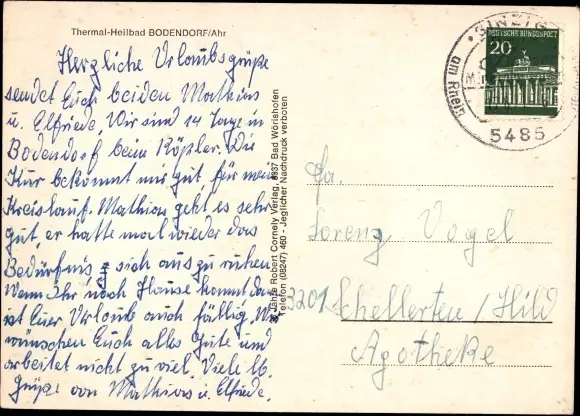 Thermal-Heilbad BODENDORF/Ahr
Herzliche Urlaubsgrüße
sendet Euch beiden Mathias
u. Elfriede. Wir sind 14 Tage in
Bodendorf beim Köpler. Die
Kur bekommt mir gut, für mein
Kreislauf. Mathias geht es sehr
gut, er hatte mal wieder das
Bedürfnis, sich auszuruhen.
Wenn Ihr nach Hause kommt dann
ist Euer Urlaub auch fällig. Wir
wünschen Euch alles Gute und
arbeitet nicht zu viel. Viele lb.
Grüße von Mathias u. Elfriede.
Jahre Robert Cornely Verlag, 8937 Bad Wörishofen
Telefon (08247) 460 - Jeglicher Nachdruck verboten
SINZIG
am Rhein
5485
DEUTSCHE BUNDESPOST
20
Fa.
Lorenz Vogel
3201 Schellerten / Hild
Apotheke